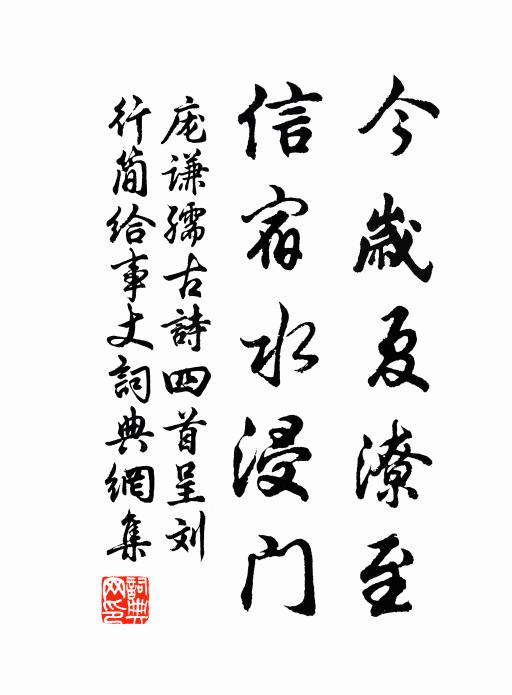 今歲夏潦至
信宿水浸门
庞谦孺古詩四首呈刘
行简给事丈詞典網集
詞典網印